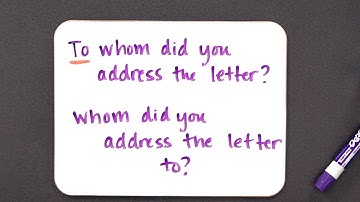 To whom did you
address the letter?
Whom did you
address the letter
to?